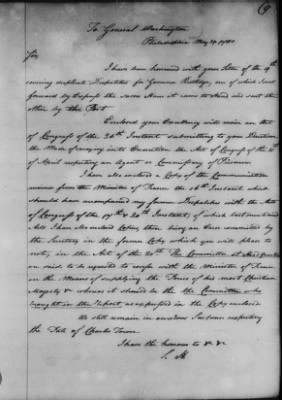 9
To General Washington
Philadelphia May 24 1780
Sir,
I have been honored with your Letter of the 19th
covering duplicate Dispatches for Governor Rutledge, one of which I sent
forward by Express the same Hour it came to Hand and sent the
other by this Post
Enclosed your Excellency will receive an Act
of Congress of the 22d Instant submitting to your Direction
the Mode of carrying into Execution the Act of Congress of the
of April respecting an Agent or Commissary of Prisoners
I have also enclosed a Copy of the Communications
received from the Minister of France the 16th Instant which
should have accompanied my former Dispatches with the Acts
of Congress of the 19th & 20th Instant; of which last mentioned
Act I have also enclosed Copies, there being an Error committed by
the Secretary in the former Copy which you will please to
notice, in the Act of the 20th The Committee at Head Quarters
are said to be requested to confer with the Minister of France
on the Means of supplying the Forces of his most Christian
Majesty & whereas it should be the Committee who
brought in the Report as expressed in the Copy enclosed
We still remain in anxious Suspense respecting
the Fate of Charles Town
I have the honour to be &c
S. H